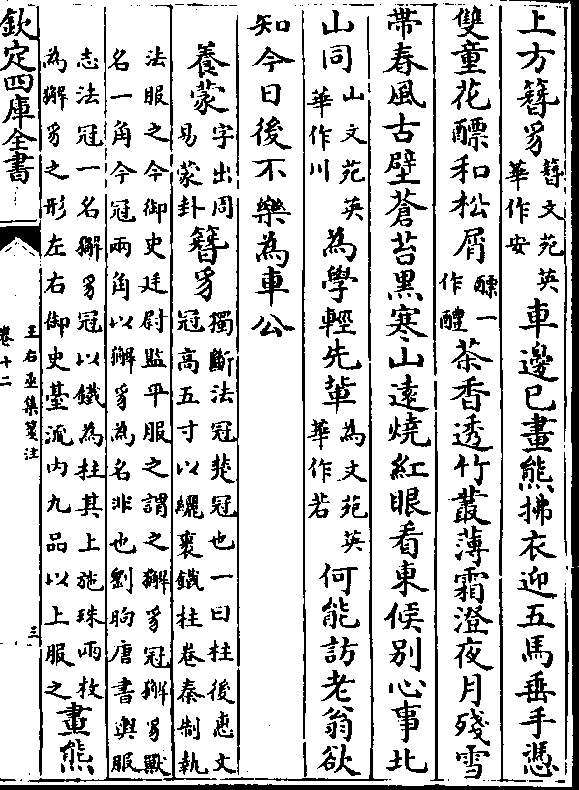 上方簪豸簪文苑英華作安車邊已畫熊拂衣迎五馬垂手憑
雙童花醥和松屑醥一作醴茶香透竹叢薄霜澄夜月殘雪
帶春風古壁蒼苔黑寒山遠燒紅眼看東候別心事北
山同山文苑英華作川為學輕先軰為文苑英華作若何能訪老翁欲
知今日後不樂為車公
養蒙字出周易蒙卦簪豸獨斷法冠楚冠也一曰柱後惠文冠高五寸以纚裹鐵柱卷秦制執
法服之今御史廷尉監平服之謂之獬豸冠獬豸獸名一角今冠兩角以獬豸為名非也劉昫唐書輿服
志法冠一名獬豸冠以鐵為柱其上施珠兩枚為獬豸之形左右御史臺流内九品以上服之畫熊
欽定四庫全書
王右丞集箋注
卷十二
三